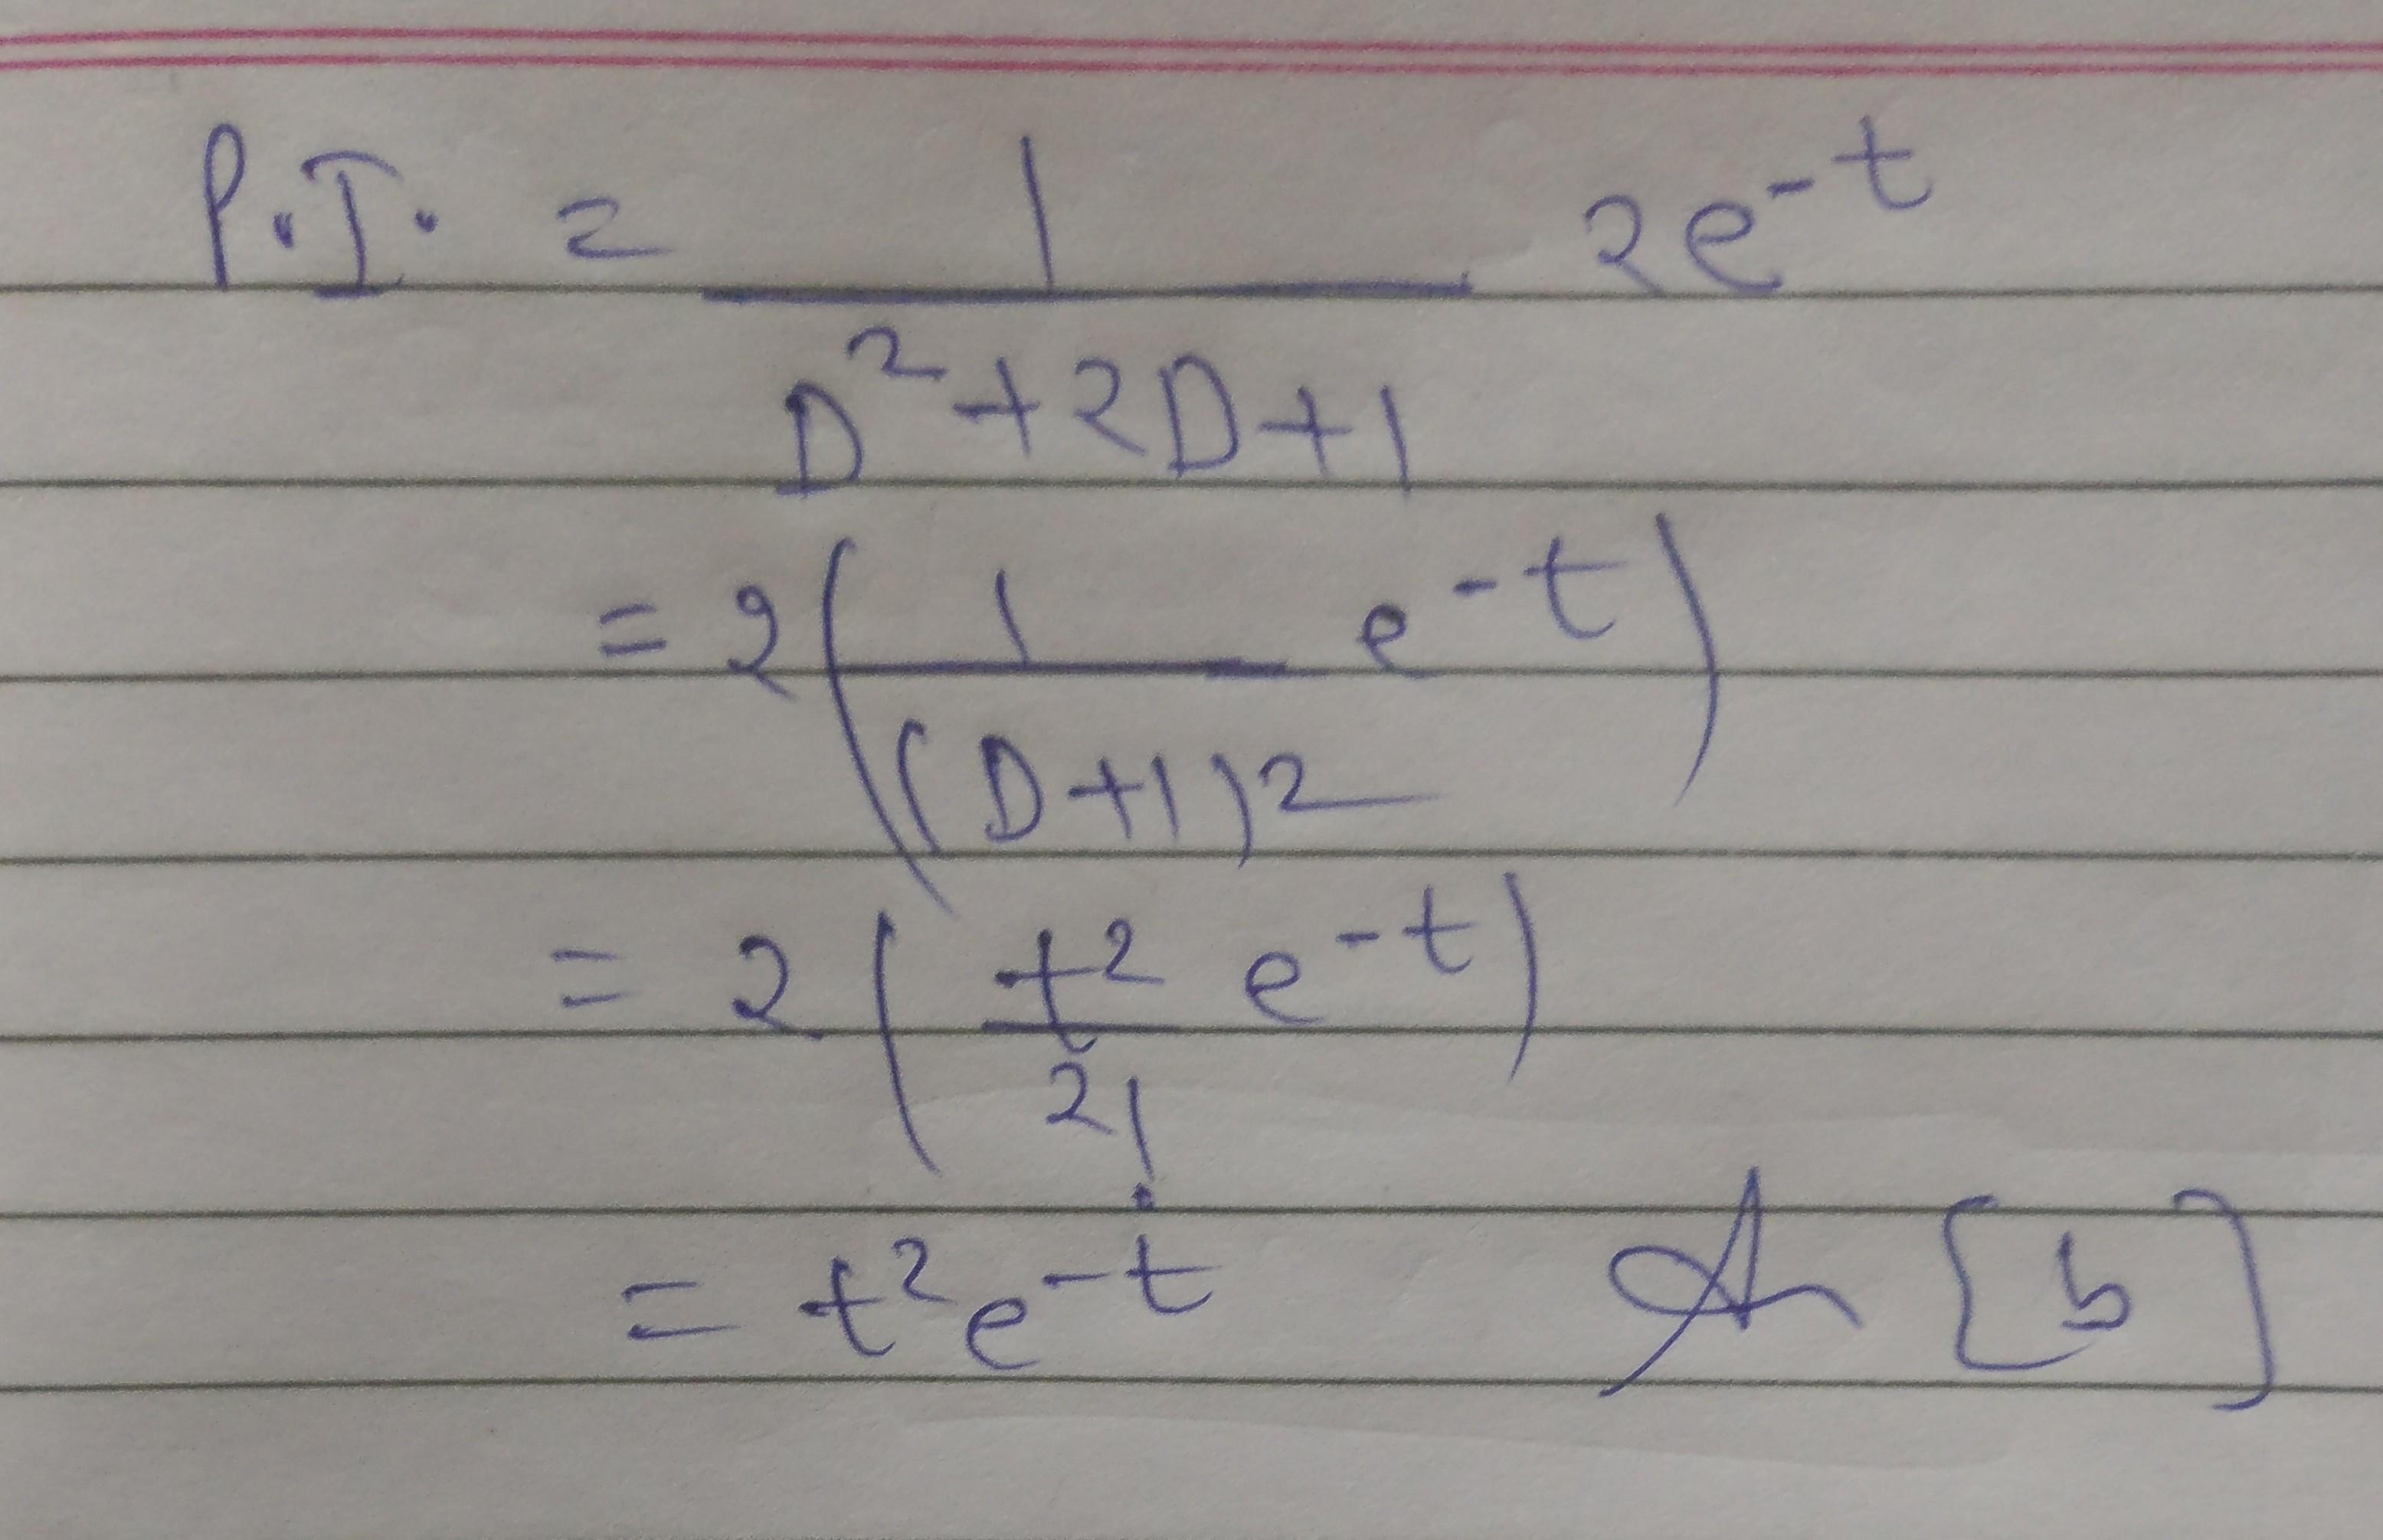 P.I. = 1 / (D² + 2D + 1) 2e^-t
= 2 ( 1 / (D+1)² e^-t )
= 2 ( t² / 2! e^-t )
= t² e^-t    An [b]